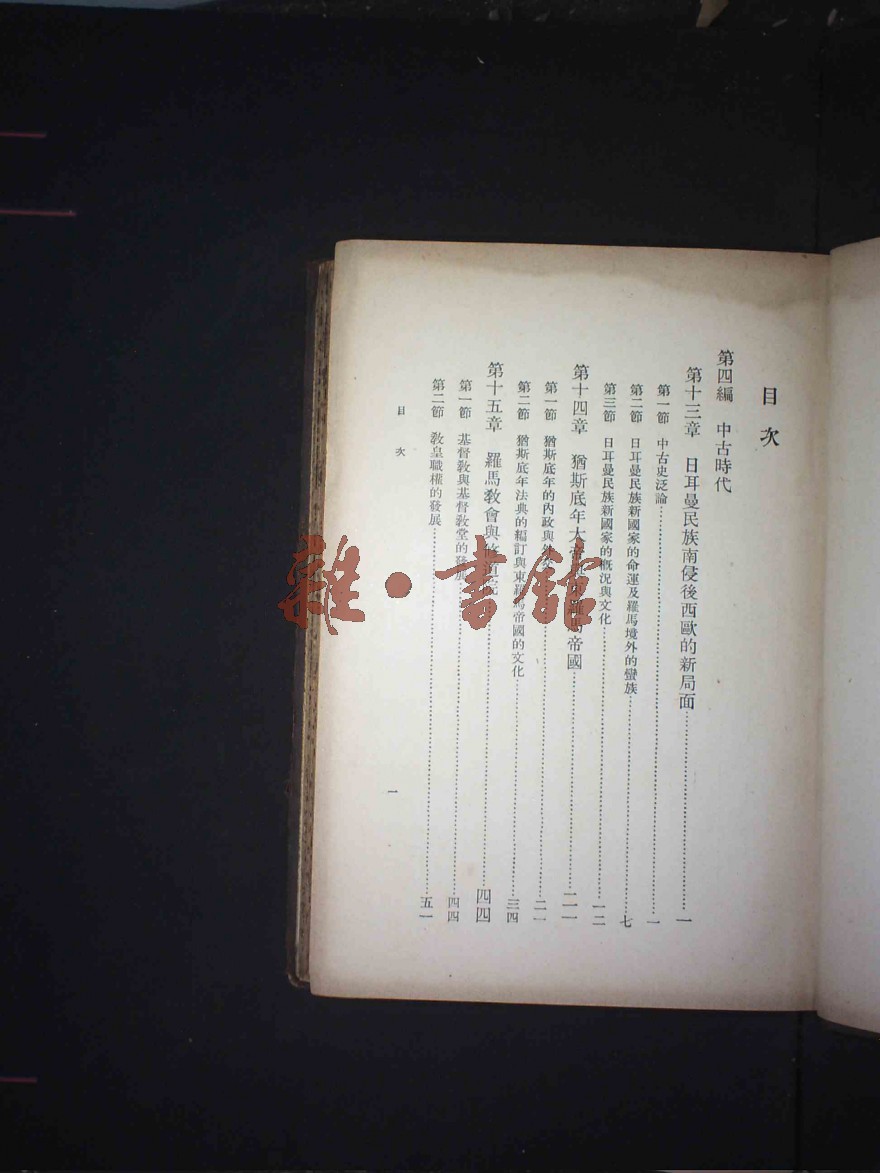 目次
第四編 中古時代
第十三章 日耳曼民族南侵後西歐的新局面……一
第一節 中古史泛論……一
第二節 日耳曼民族新國家的命運及羅馬境外的蠻族……七
第三節 日耳曼民族新國家的概況與文化……一二
第十四章 猶斯底年大帝與東羅馬帝國……二一
第一節 猶斯底年的內政與……二一
第二節 猶斯底年法典的編訂與東羅馬帝國的文化……三四
第十五章 羅馬教會與修道院……四四
第一節 基督教與基督教堂的發展……四四
第二節 教皇職權的發展……五一
目次
一
雜·書館